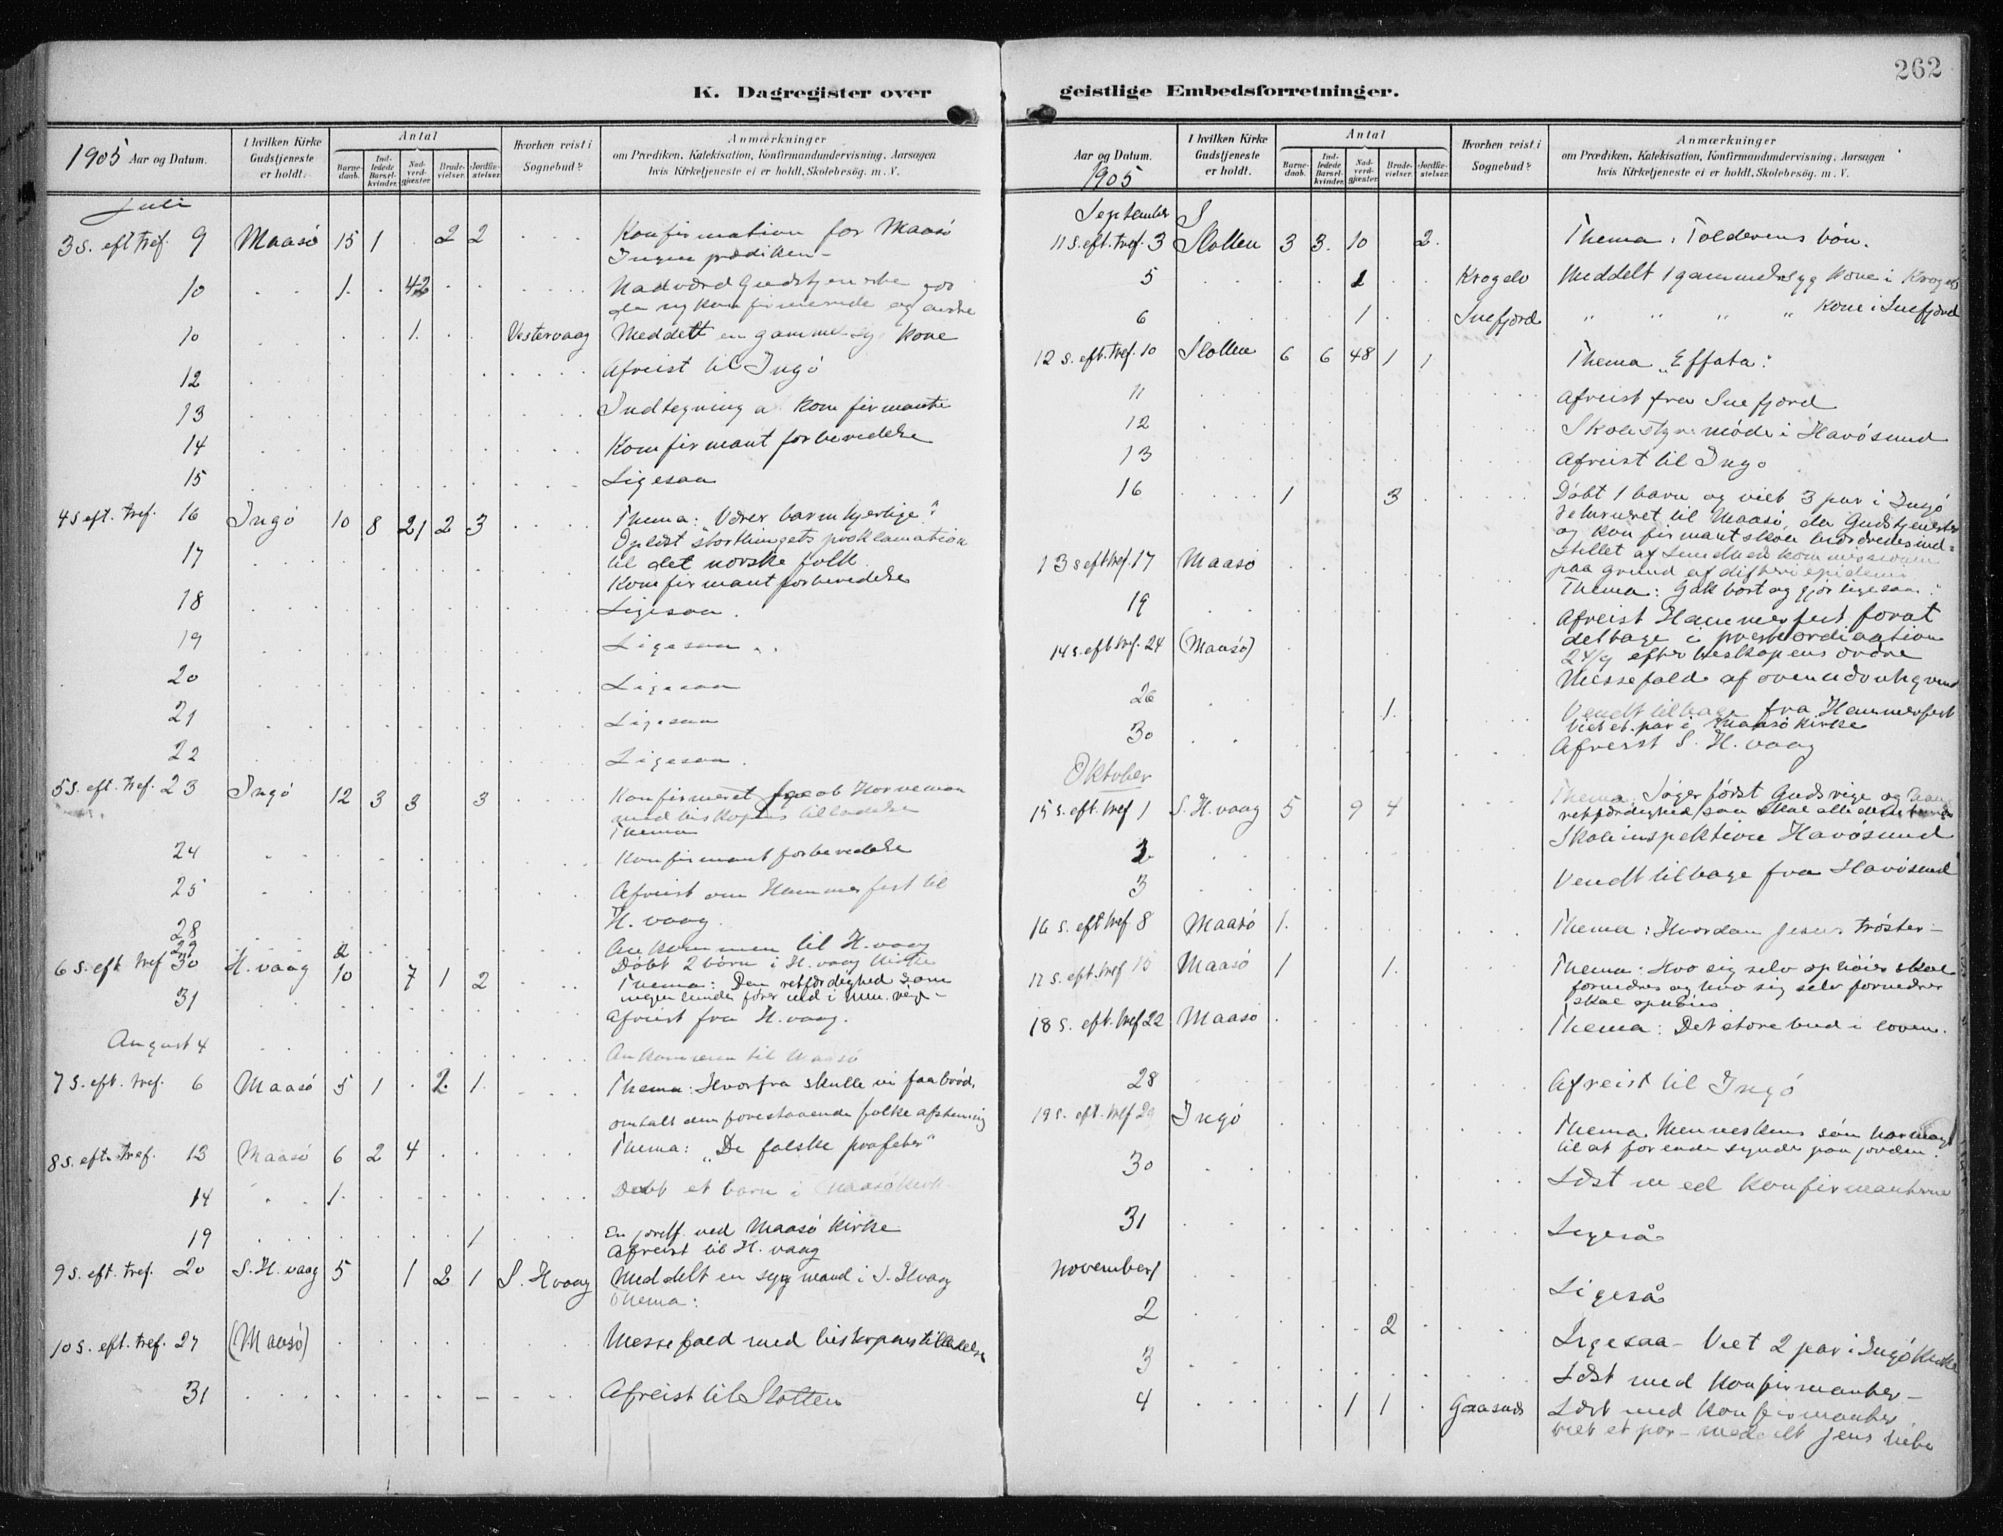 262
K. Dagregister over
geistlige Embedsforretninger.
1905 Aar og Datum.
I hvilken Kirke Gudstjeneste er holdt.
Antal
Barnedaab.
Indledede Barselkvinder.
Nadverdgjæster.
Brudevielser.
Jordfæstelser.
Hvorhen reist i Sognebud?
Anmærkninger
om Prædiken, Katekisation, Konfirmandundervisning, Aarsagen
hvis Kirketjeneste ei er holdt, Skolebesøg. m. V.
Juli
3 s. eft tref. 9 Maasø 15 1 . 2 2 Konfirmation for Maasø
Ingen prædiken –
10 1. 42 Nadverd Gudstjeneste
konfirmerede og andre
10 1. Vestervaag Meddelt en gammel syg kone
12 Afreist til Ingø
13 Indtegning konfirmanter
14 Konfirmantforberedelse
15 Ligesaa
4 s eft. tref. 16 Ingø 10 8 21 2 3 Thema: "Værer barmhjertige".
Oplæst storthingets proklamation
17 til det norske folk
Konfirmantforberedelse
18 Ligesaa.
19 Ligesaa
20 Ligesaa
21 Ligesaa
22 Ligesaa.
5 s. eft. tref. 23 Ingø 12 3 3 3 Konfirmeret Jacob Horneman
med biskopens tilladelse
Thema
24 Konfirmantforberedelse
25 Afreist om Hammerfest til
H. vaag.
28 Ankommen til H. vaag
29 2 Døbt 2 børn i H. vaag kirke
6 s. eft tref 30 H. vaag 10 7 1 2 Thema: Den retfærdighed som
31 Afreist fra H. vaag.
August 4 Ankommen til Maasø
7 s. eft. tref. 6 Maasø 5 1 . 2. 1. Thema: Hvorfra skulle vi faa brød,
omtalt den forestaaende folkeafstemning
8 s. eft. tref. 13 Maasø 6 2 4 Thema: "De falske profeter"
14 1. Døbt et barn i Maasø kirk
19 1 En jordf. ved Maasø kirke
Afreist til H. vaag
9 s. eft. tref. 20 S. H. vaag 5 1 2 1 S. Hvaag Meddelt en syg mand i S. Hvaag
Thema:
10 s. eft. tref. 27 (Maasø) Messefald med biskopens tilladelse
31 – Afreist til Slotten
Aar og Datum.
1905
I hvilken Kirke Gudstjeneste er holdt.
Antal
Barnedaab.
Indledede Barselkvinder.
Nadverdgjæster.
Brudevielser.
Jordfæstelser.
Hvorhen reist i Sognebud?
Anmærkninger
om Prædiken, Katekisation, Konfirmandundervisning, Aarsagen
hvis Kirketjeneste ei er holdt, Skolebesøg. m. V.
September
11 s. eft. tref. 3 Slotten 3 3. 10 2. Thema: Tolderens bøn.
5 1 Krogelv Meddelt 1 gammel syg kone i Krogelv
6 1 Snefjord " " " " kone i Snefjord
12 s. eft. tref. 10 Slotten 6 6 48 1 1 Thema "Effata".
11 Afreist fra Snefjord
12 Skolestyremøde i Havøsund
13 Afreist til Ingø
16 1 3 Døbt 1 barn og viet 3 par i Ingø
returneret til Maasø, da Gudstjeneste
og konfirmantskole ind=
stillet af Sundhedskommissionen
13 s eft tref. 17 Maasø paa grund af difteriepidemi
Thema: Gak bort og gjør ligesaa
19 Afreist Hammerfest forat
deltage i præsteordination
14 s. eft tref. 24 (Maasø) 24/9 efter biskopens ordre
Messefald af ovennævnte grund
26 Vendt tilbage fra Hammerfest
1. Viet et par i Maasø kirke
30 Afreist S. H. vaag
Oktober
15 s. eft. tref 1 S. H. vaag 5 9 4 Thema: Søger først Guds rige og
retfærdighed saa skal alle
2 Skoleinspektion Havøsund
3 Vendt tilbage fra Havøsund
16 s. eft tref 8 Maasø 1. Thema: Hvordan Jesus trøster –
17 s. eft. tref 15 Maasø 1 1. Thema: Hvo sig selv ophøier skal
fornedres og hvo sig selv fornedrer
skal ophøies
18 s. eft. tref 22 Maasø Thema: Det store bud i loven.
28 Afreist til Ingø
19 s. eft. tref 29 Ingø Thema Menneskens søn har magt
til at forlade synder paa jorden.
30 Læst med konfirmanterne
31 Ligeså
November 1 Ligeså
2 2 Ligesaa – Viet 2 par i Ingø kirke
3 Læst med konfirmanter –
4 1 1 Gaasnes Læst med konfirmanter
viet et par – meddelt Jens